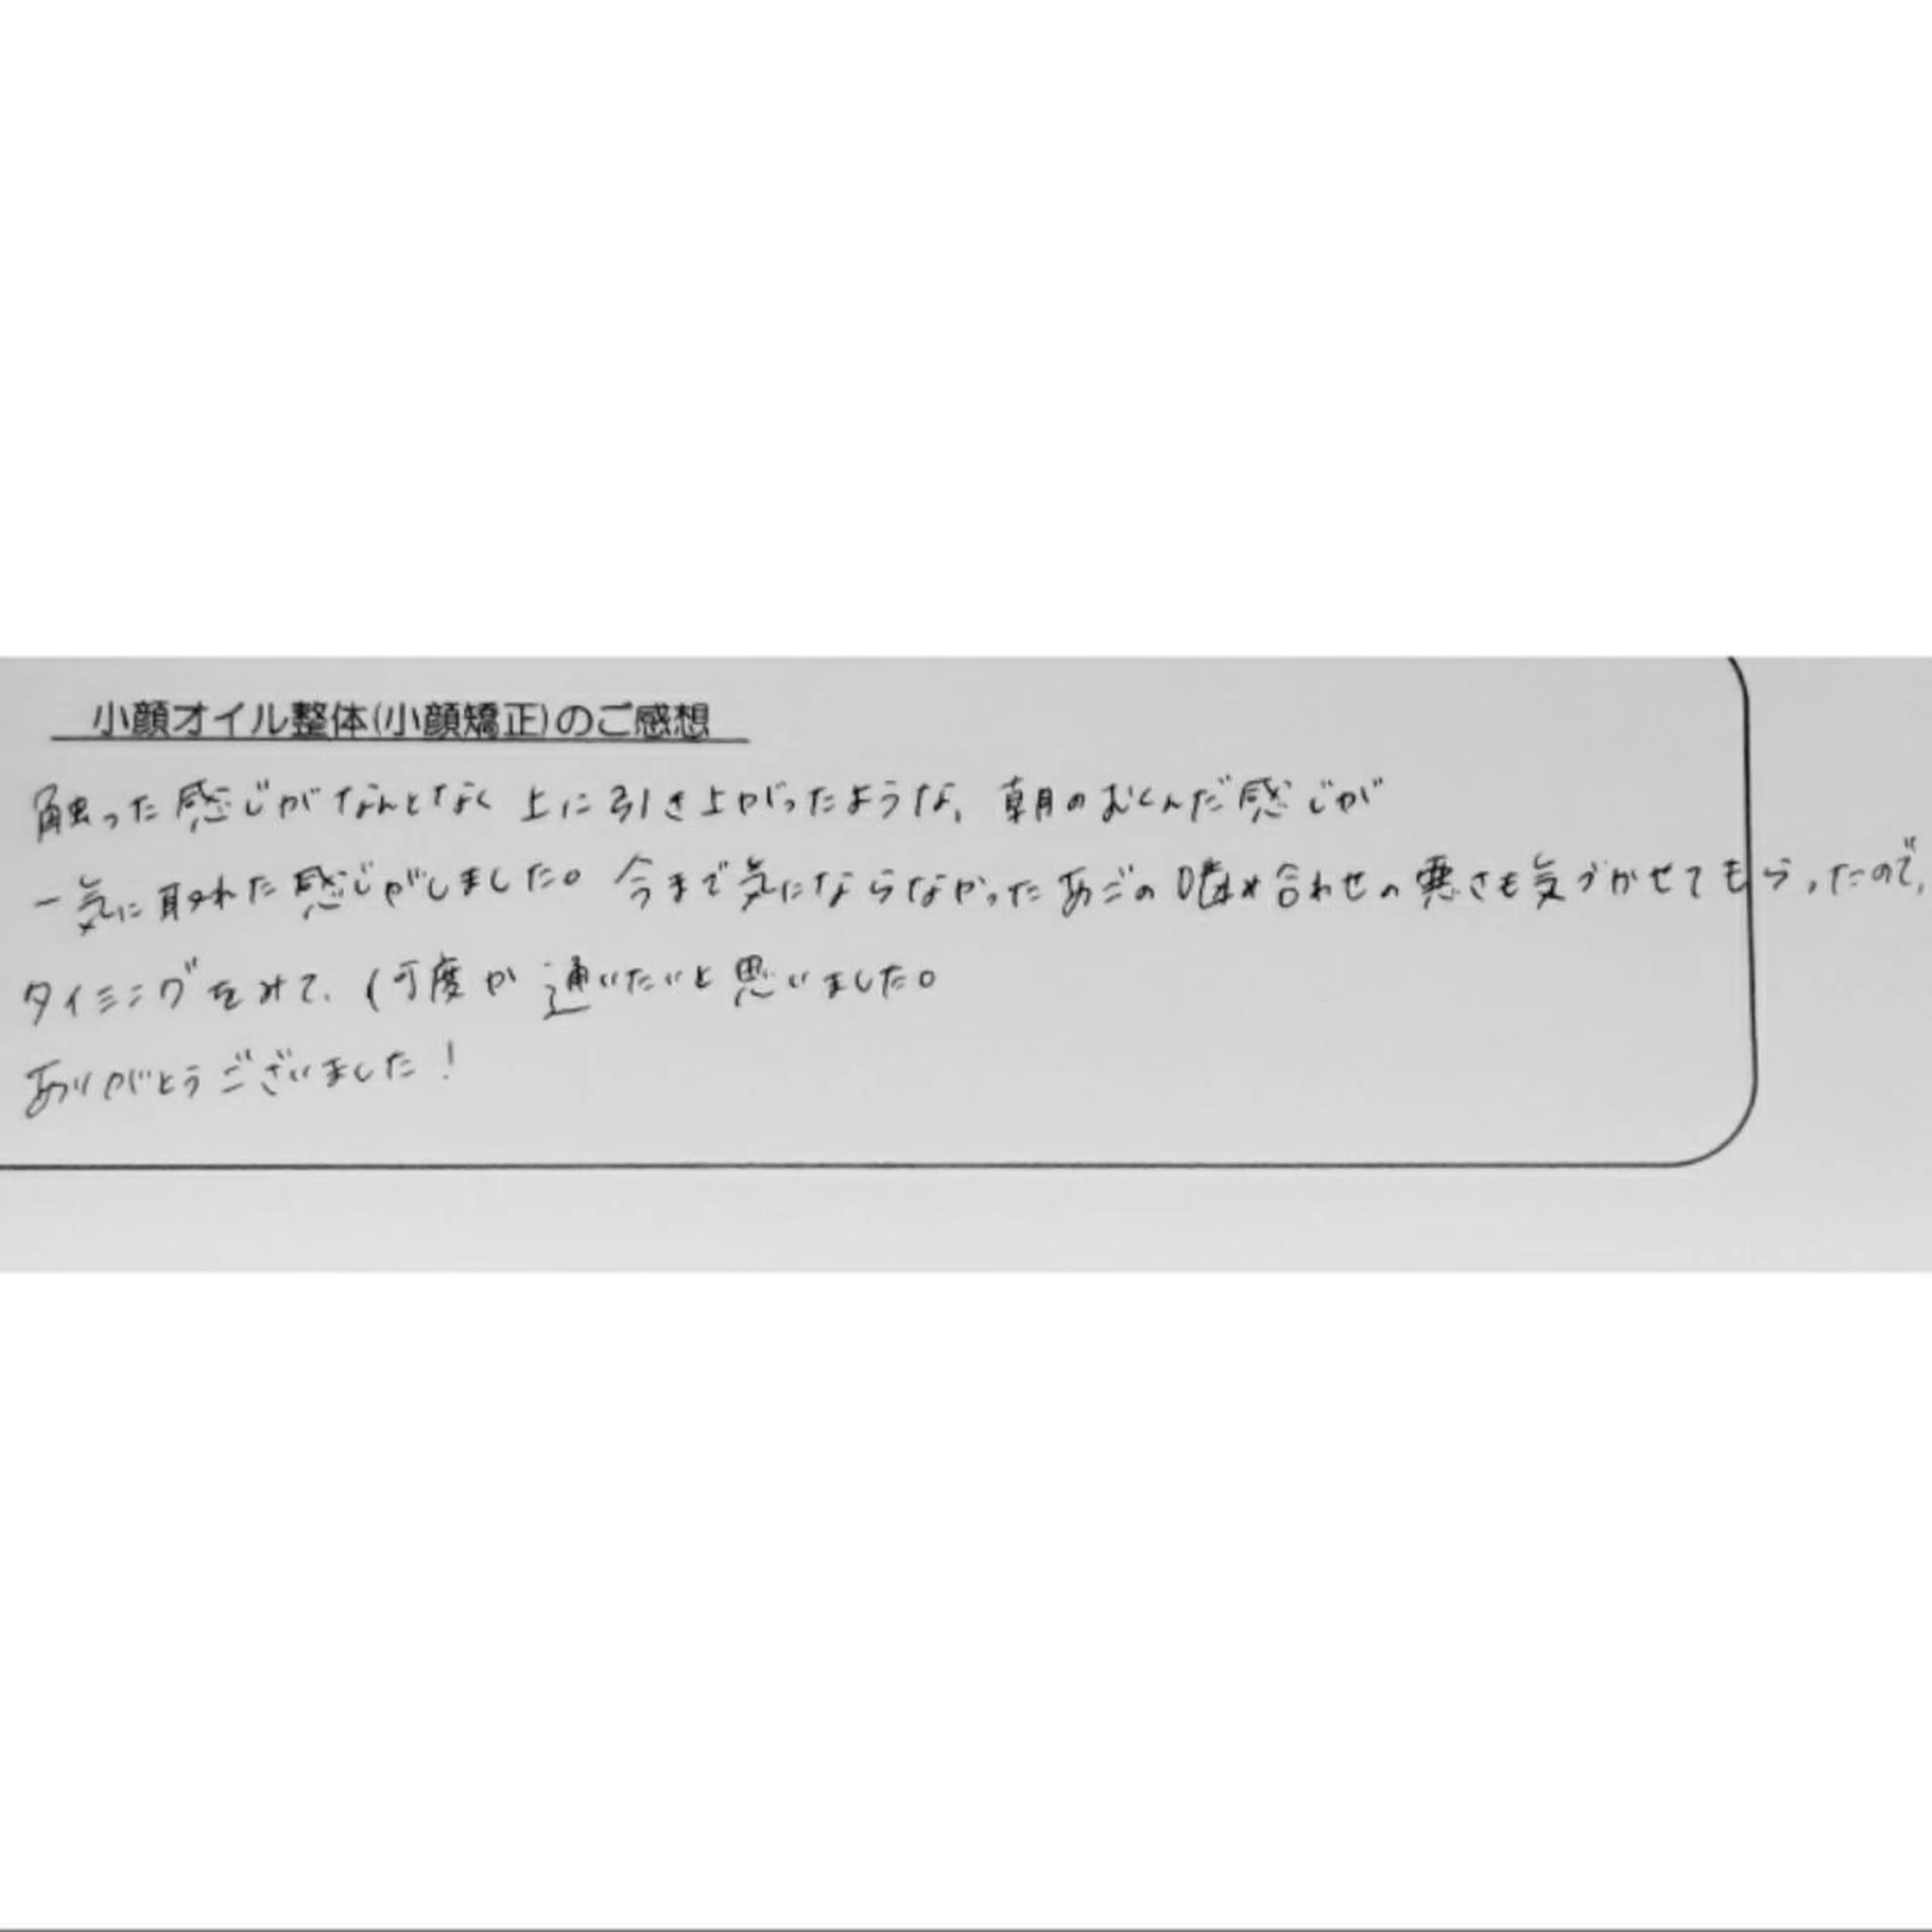 小顔オイル整体(小顔矯正)のご感想
触った感じがなんとなく上に引き上がったような、朝のむくんだ感じが
一気に取れた感じがしました。今まで気にならなかったあごの噛み合わせの悪さも気づかせてもらったので、
タイミングをみて、何度か通いたいと思いました。
ありがとうございました!